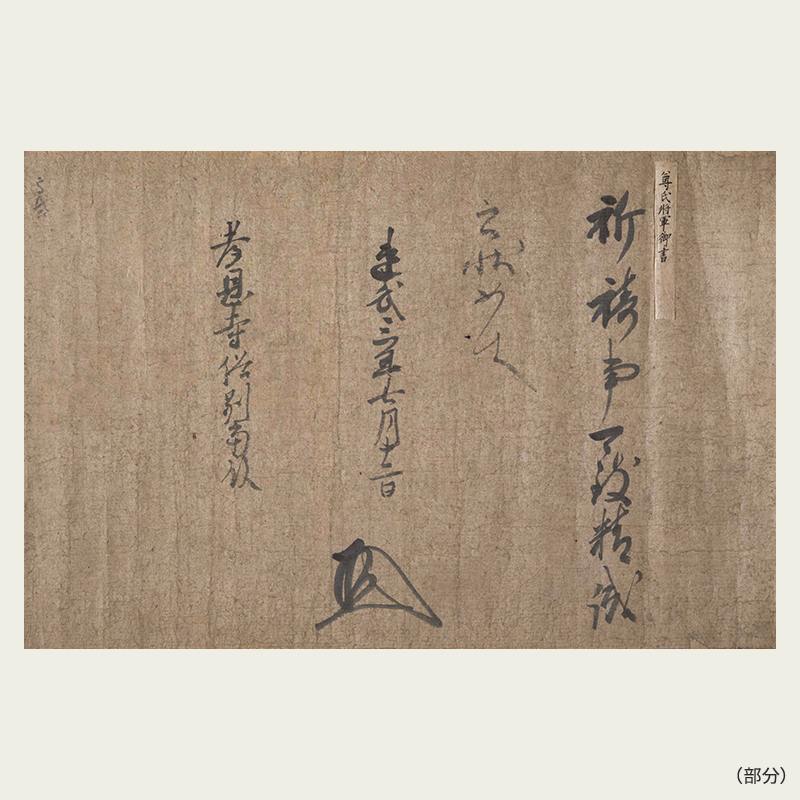 尊氏將軍御書
祈祷事可致精誠
之状如件
建武三年七月十二日
孝恩寺俗別当殿
（部分）